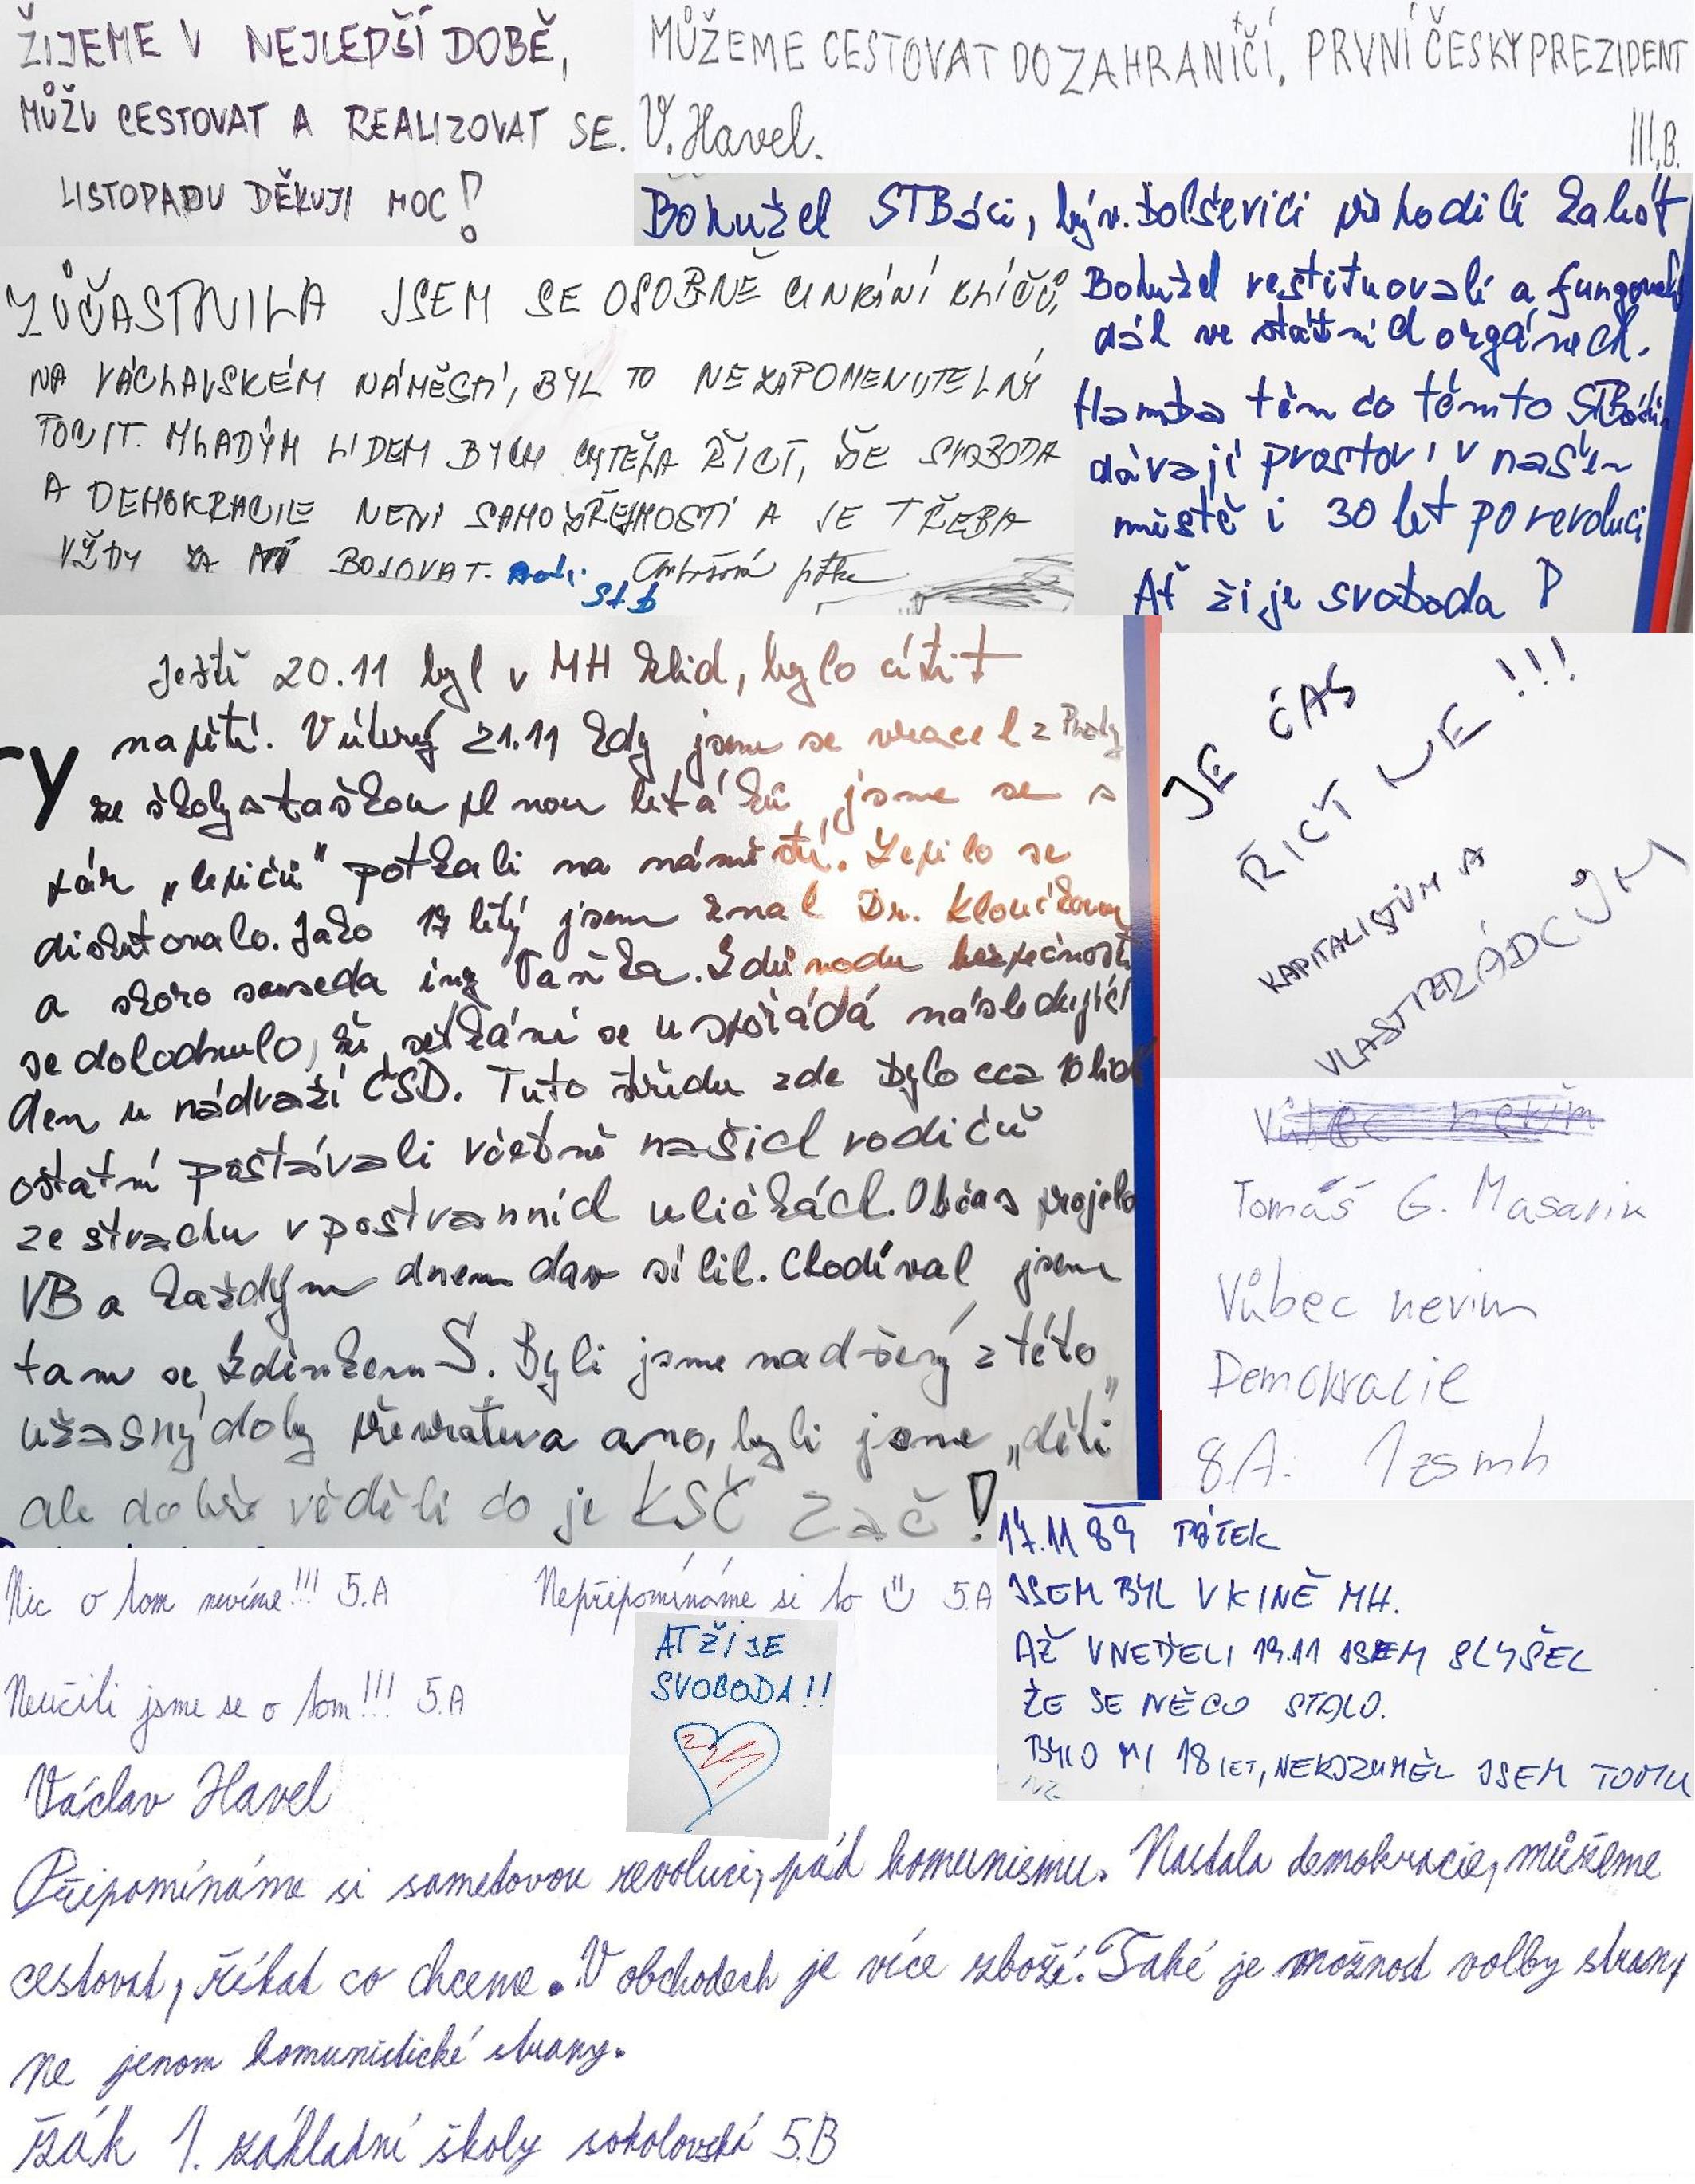 ŽIJEME V NEJLEPŠÍ DOBĚ,
MŮŽU CESTOVAT A REALIZOVAT SE.
LISTOPADU DĚKUJI MOC!
MŮŽEME CESTOVAT DO ZAHRANIČÍ. PRVNÍ ČESKÝ PREZIDENT
V. Havel.
III.B.
Bohužel STBáci, býv. bolševici převhodili kabát
Bohužel restituovali a fungovali
dál ve státních orgánech.
Hamba těm co těmto STBáků
dávají prostor i v našem
městě i 30 let po revoluci
Ať žije svoboda !
ZÚČASTNILA JSEM SE OSOBNĚ CINKÁNÍ KLÍČŮ,
NA VÁCLAVSKÉM NÁMĚSTÍ, BYL TO NEZAPOMENUTELNÝ
POCIT. MLADÝM LIDEM BYCH CHTĚLA ŘÍCT, ŽE SVOBODA
A DEMOKRACIE NENÍ SAMOZŘEJMOSTÍ A JE TŘEBA
VŽDY ZA NÍ BOJOVAT.
StB
Ještě 20.11 byl v MH klid, bylo cítit
napětí. V úterý 21.11 kdy jsme se vracel z Prahy
ze školy s taškou plnou letáků, jsme se s
pár „lepiči" potkali na náměstí. Lepilo se
diskutovalo. Jako 17 letý jsem znal Dr. Kloučkovou
a skoro souseda ing Vaňka. Z důvodu bezpečnosti
se dohodnulo, že setkání se uspořádá následující
den u nádraží ČSD. Tuto středu zde bylo cca 10 lidí
ostatní postávali včetně našich rodičů
ze strachu v postranních uličkách. Občas projela
VB a každým dnem dav sílil. Chodíval jsem
tam se Zdeňkem S. Byli jsme nadšený z této
užasný doby převratu a ano, byli jsme „děti"
ale dobře věděli co je KSČ zač!
JE ČAS
ŘICT NE!!!
KAPITALISTŮM A
VLASTIZRÁDCŮM
Vůbec nevim
Tomáš G. Masarik
Vůbec nevim
Demokracie
8.A. 1zsmh
Nic o tom nevíme!!! 5.A
Nepřipomínáme si to 5.A
Neučili jsme se o tom!!! 5.A
AŤ ŽIJE
SVOBODA!!
17.11 89 PÁTEK
JSEM BYL V KINĚ MH.
AŽ V NEDĚLI 19.11 JSEM SLYŠEL
ŽE SE NĚCO STALO.
BYLO MI 18 LET, NEROZUMĚL JSEM TOMU
Václav Havel
Připomínáme si sametovou revoluci, pád komunismu. Nastala demokracie, můžeme
cestovat, říkat co chceme. V obchodech je více zboží. Také je možnost volby strany
ne jenom komunistické strany.
žák 1. základní školy sokolovská 5.B